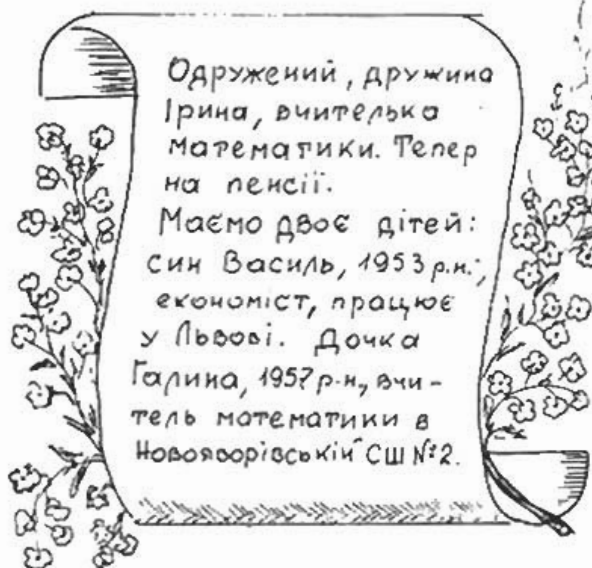 Одружений, дружина
Ірина, вчителька
математики. Тепер
на пенсії.
Маємо двоє дітей:
син Василь, 1953 р.н.,
економіст, працює
у Львові. Дочка
Галина, 1957 р.н., вчи-
тель математики в
Новояворівській СШ №2.